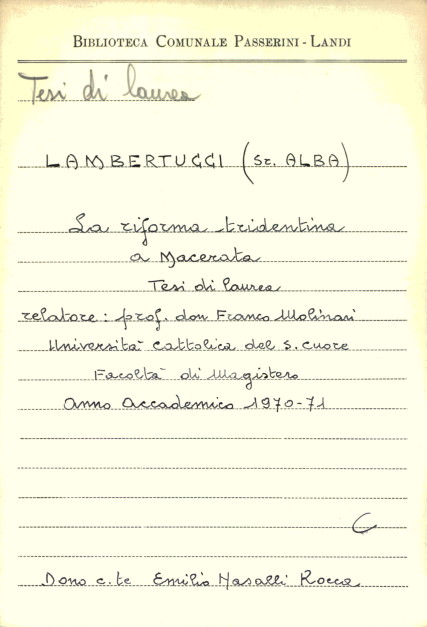 BIBLIOTECA COMUNALE PASSERINI - LANDI
Tesi di laurea
LAMBERTUCCI (Sr. ALBA)
La riforma tridentina
a Macerata
Tesi di laurea
relatore: prof. don Franco Molinari
Università Cattolica del S. Cuore
Facoltà di Magistero
Anno Accademico 1970-71
C
Dono c.te Emilio Nasalli Rocca